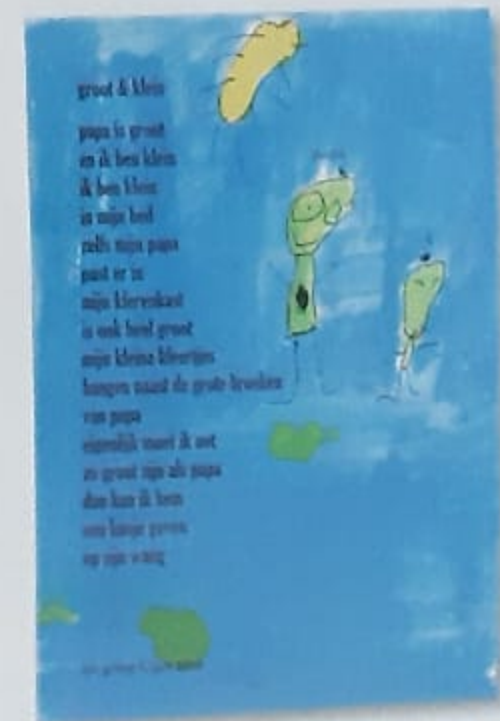 groot & klein
papa is groot
en ik ben klein
ik ben klein
in mijn bed
zelfs mijn papa
past er in
mijn klerenkast
is ook heel groot
mijn kleine kleertjes
hangen naast de grote broeken
van papa
eigenlijk moet ik net
zo groot zijn als papa
dan kan ik hem
een kusje geven
op zijn wang